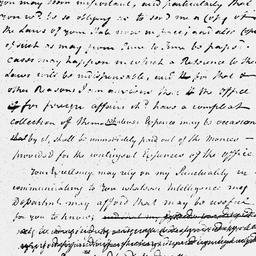 you may deem important, and particularly that
you wd. be so obliging as to send me a Copy of
the Laws of your State now in force; and also copies
of such as may from Time to Time be passed.
Cases may happen in which a Reference to those
Laws will be indispensable, and for that &
other Reasons I am anxious that the office
for foreign affairs shd. have a compleat
collection of them. Whatever Expence may be occasioned
by it, shall be immediately paid out of the Monies
provided for the contingent Expences of the office
Your Excellency may rely on my Punctuality in
communicating to you whatever Intelligence my
Departmt. may afford that may be useful
for you to know.